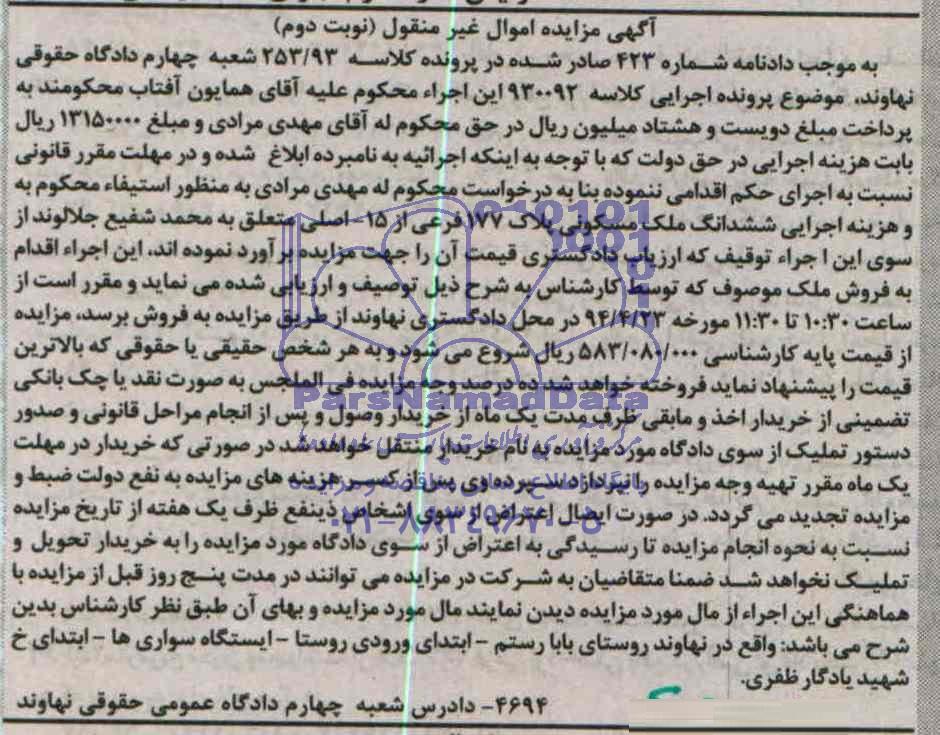 آگهی مزایده اموال غیر منقول (نوبت دوم)
به موجب دادنامه شماره ۴۲۳ صادر شده در پرونده کلاسه ۲۵۳/۹۳ شعبه چهارم دادگاه حقوقی
نهاوند، موضوع پرونده اجرایی کلاسه ۹۳۰۰۹۲ این اجراء محکوم علیه آقای همایون آفتاب محکومند به
پرداخت مبلغ دویست و هشتاد میلیون ریال در حق محکوم له آقای مهدی مرادی و مبلغ ۱۳۱۵۰۰۰۰ ریال
بابت هزینه اجرایی در حق دولت که با توجه به اینکه اجرائیه به نامبرده ابلاغ شده و در مهلت مقرر قانونی
نسبت به اجرای حکم اقدامی ننموده بنا به درخواست محکوم له مهدی مرادی به منظور استیفاء محکوم به
و هزینه اجرایی ششدانگ ملک مسکونی پلاک ۱۷۷ فرعی از ۱۵- اصلی متعلق به محمد شفیع جلالوند از
سوی این ا جراء توقیف که ارزیاب دادگستری قیمت آن را جهت مزایده بر آورد نموده اند، این اجراء اقدام
به فروش ملک موصوف که توسط کارشناس به شرح ذیل توصیف و ارزیابی شده می نماید و مقرر است از
ساعت ۱۰:۳۰ تا ۱۱:۳۰ مورخه ۹۴/۴/۲۳ در محل دادگستری نهاوند از طریق مزایده به فروش برسد، مزایده
از قیمت پایه کارشناسی ۵۸۳/۰۸۰/۰۰۰ ریال شروع می شود و به هر شخص حقیقی یا حقوقی که بالاترین
قیمت را پیشنهاد نماید فروخته خواهد شد ده درصد وجه مزایده فی المجلس به صورت نقد یا چک بانکی
تضمینی از خریدار اخذ و مابقی ظرف مدت یک ماه از خریدار وصول و پس از انجام مراحل قانونی و صدور
دستور تملیک از سوی دادگاه مورد مزایده به نام خریدار منتقل خواهد شد در صورتی که خریدار در مهلت
یک ماه مقرر تهیه وجه مزایده را نپردازد سپرده وی پس از کسر هزینه های مزایده به نفع دولت ضبط و
مزایده تجدید می گردد. در صورت ایصال اعتراض از سوی اشخاص ذینفع ظرف یک هفته از تاریخ مزایده
نسبت به نحوه انجام مزایده تا رسیدگی به اعتراض از سوی دادگاه مورد مزایده را به خریدار تحویل و
تملیک نخواهد شد ضمنا متقاضیان به شرکت در مزایده می توانند در مدت پنج روز قبل از مزایده با
هماهنگی این اجراء از مال مورد مزایده دیدن نمایند مال مورد مزایده و بهای آن طبق نظر کارشناس بدین
شرح می باشد: واقع در نهاوند روستای بابا رستم – ابتدای ورودی روستا – ایستگاه سواری ها – ابتدای خ
شهید یادگار ظفری.
۴۶۹۴- دادرس شعبه چهارم دادگاه عمومی حقوقی نهاوند
ParsNamadData